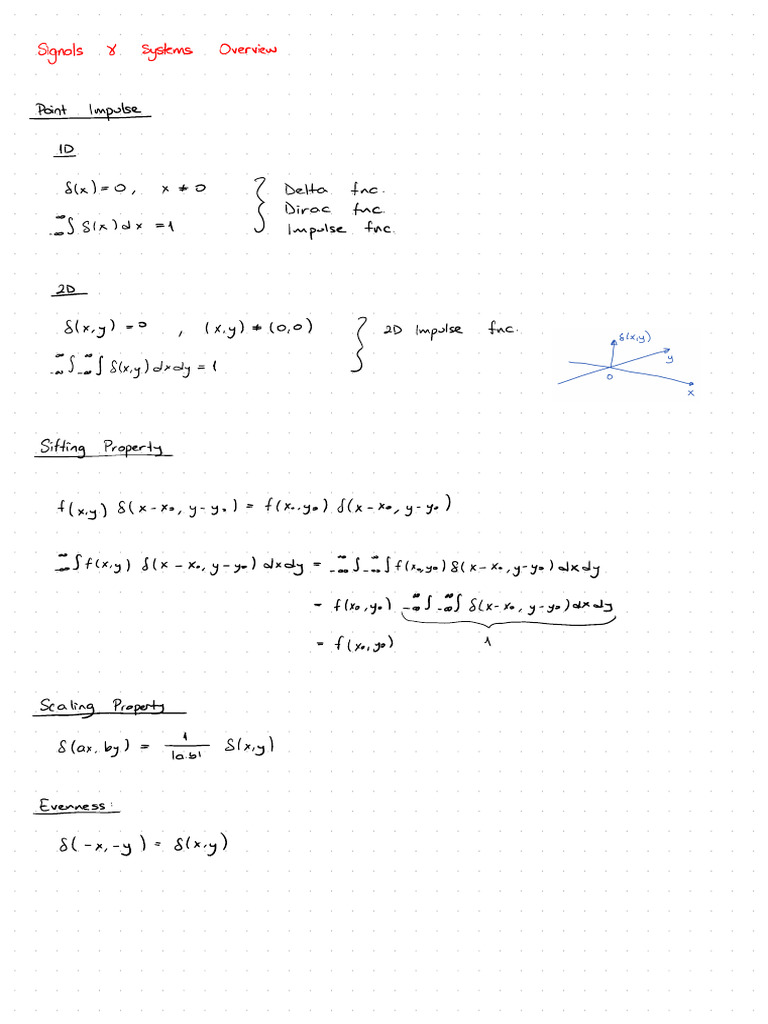 Signals & Systems Overview
Point Impulse
1D
δ(x) = 0, x ≠ 0
-∞∫∞ δ(x) dx = 1
Delta fnc.
Dirac fnc.
Impulse fnc.
2D
δ(x,y) = 0 , (x,y) ≠ (0,0)
-∞∫∞ -∞∫∞ δ(x,y) dx dy = 1
2D Impulse fnc.
δ(x,y)
y
0
x
Sifting Property
f(x,y) δ(x-x₀, y-y₀) = f(x₀,y₀) δ(x-x₀, y-y₀)
-∞∫∞ f(x,y) δ(x-x₀, y-y₀) dx dy = -∞∫∞ -∞∫∞ f(x₀,y₀) δ(x-x₀, y-y₀) dx dy
= f(x₀,y₀) -∞∫∞ -∞∫∞ δ(x-x₀, y-y₀) dx dy
= f(x₀,y₀) 1
Scaling Property
δ(ax, by) = 1/|a.b| δ(x,y)
Evenness:
δ(-x,-y) = δ(x,y)